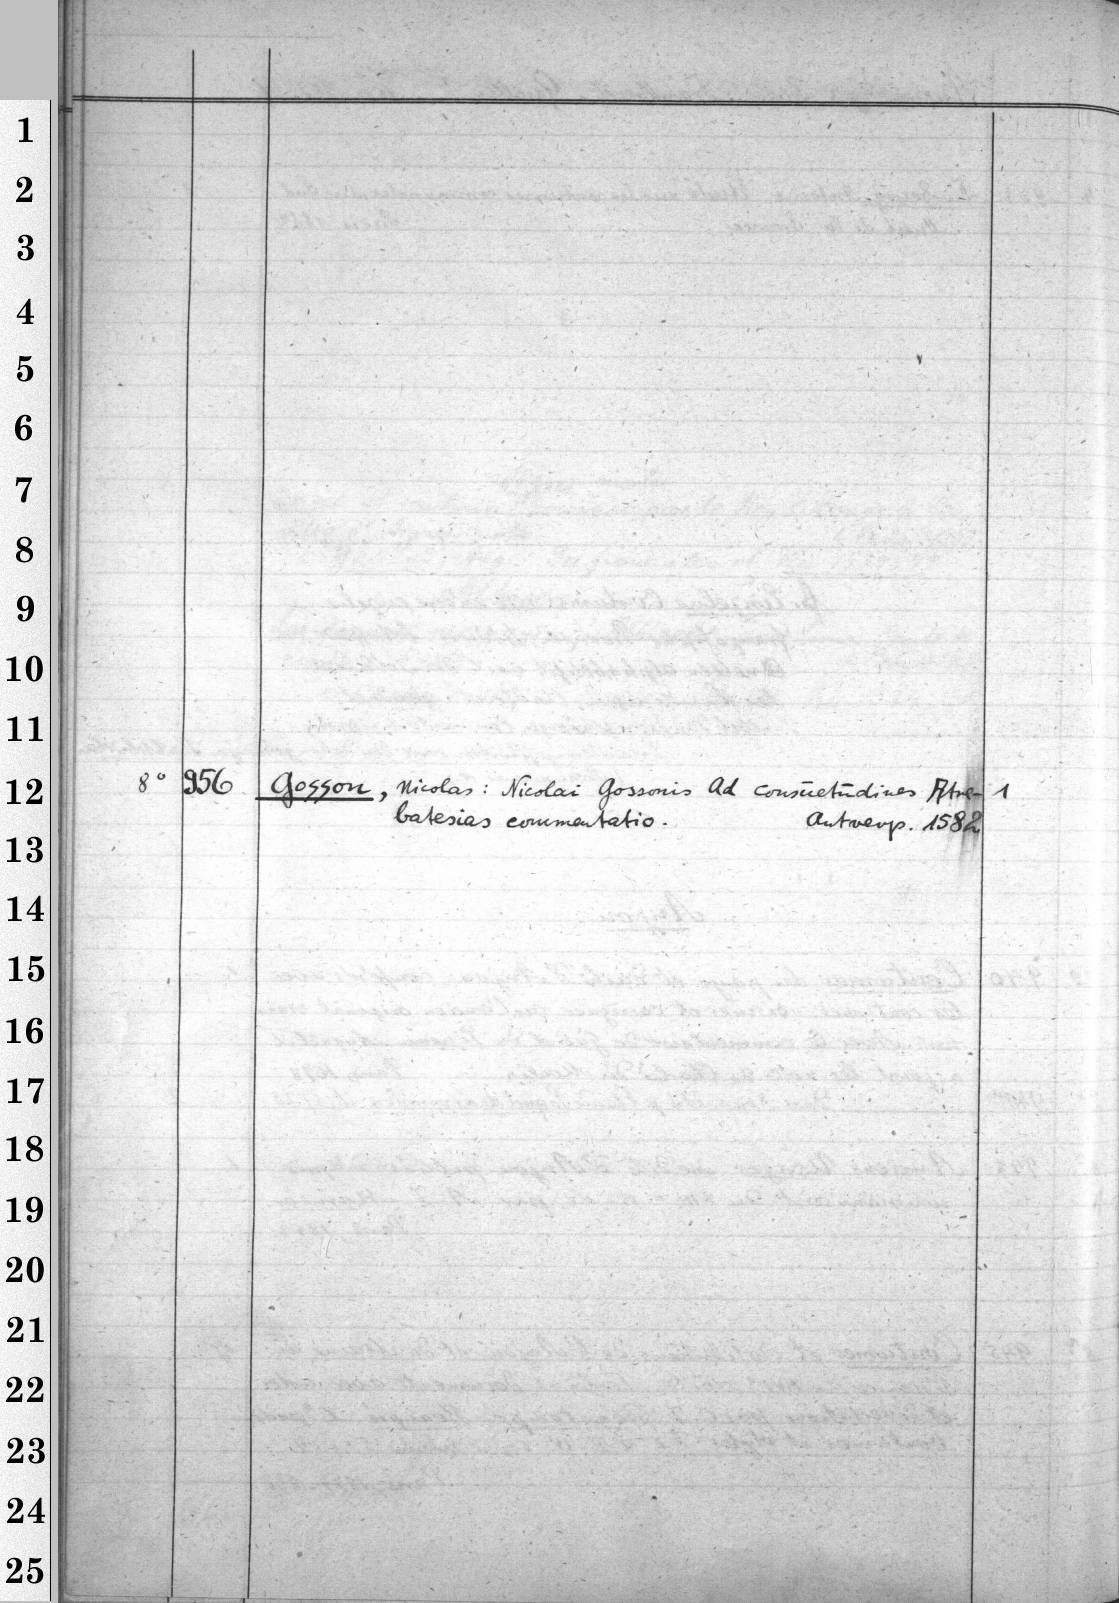 1
2
3
4
5
6
7
8
9
10
11
12 8° 956 Gosson, Nicolas: Nicolai Gossonis Ad consuetudines Atre- 1
batesias commentatio. Antverp. 1582
13
14
15
16
17
18
19
20
21
22
23
24
25